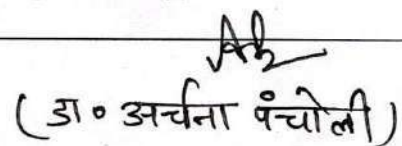 ( डा० अर्चना पंचोली )